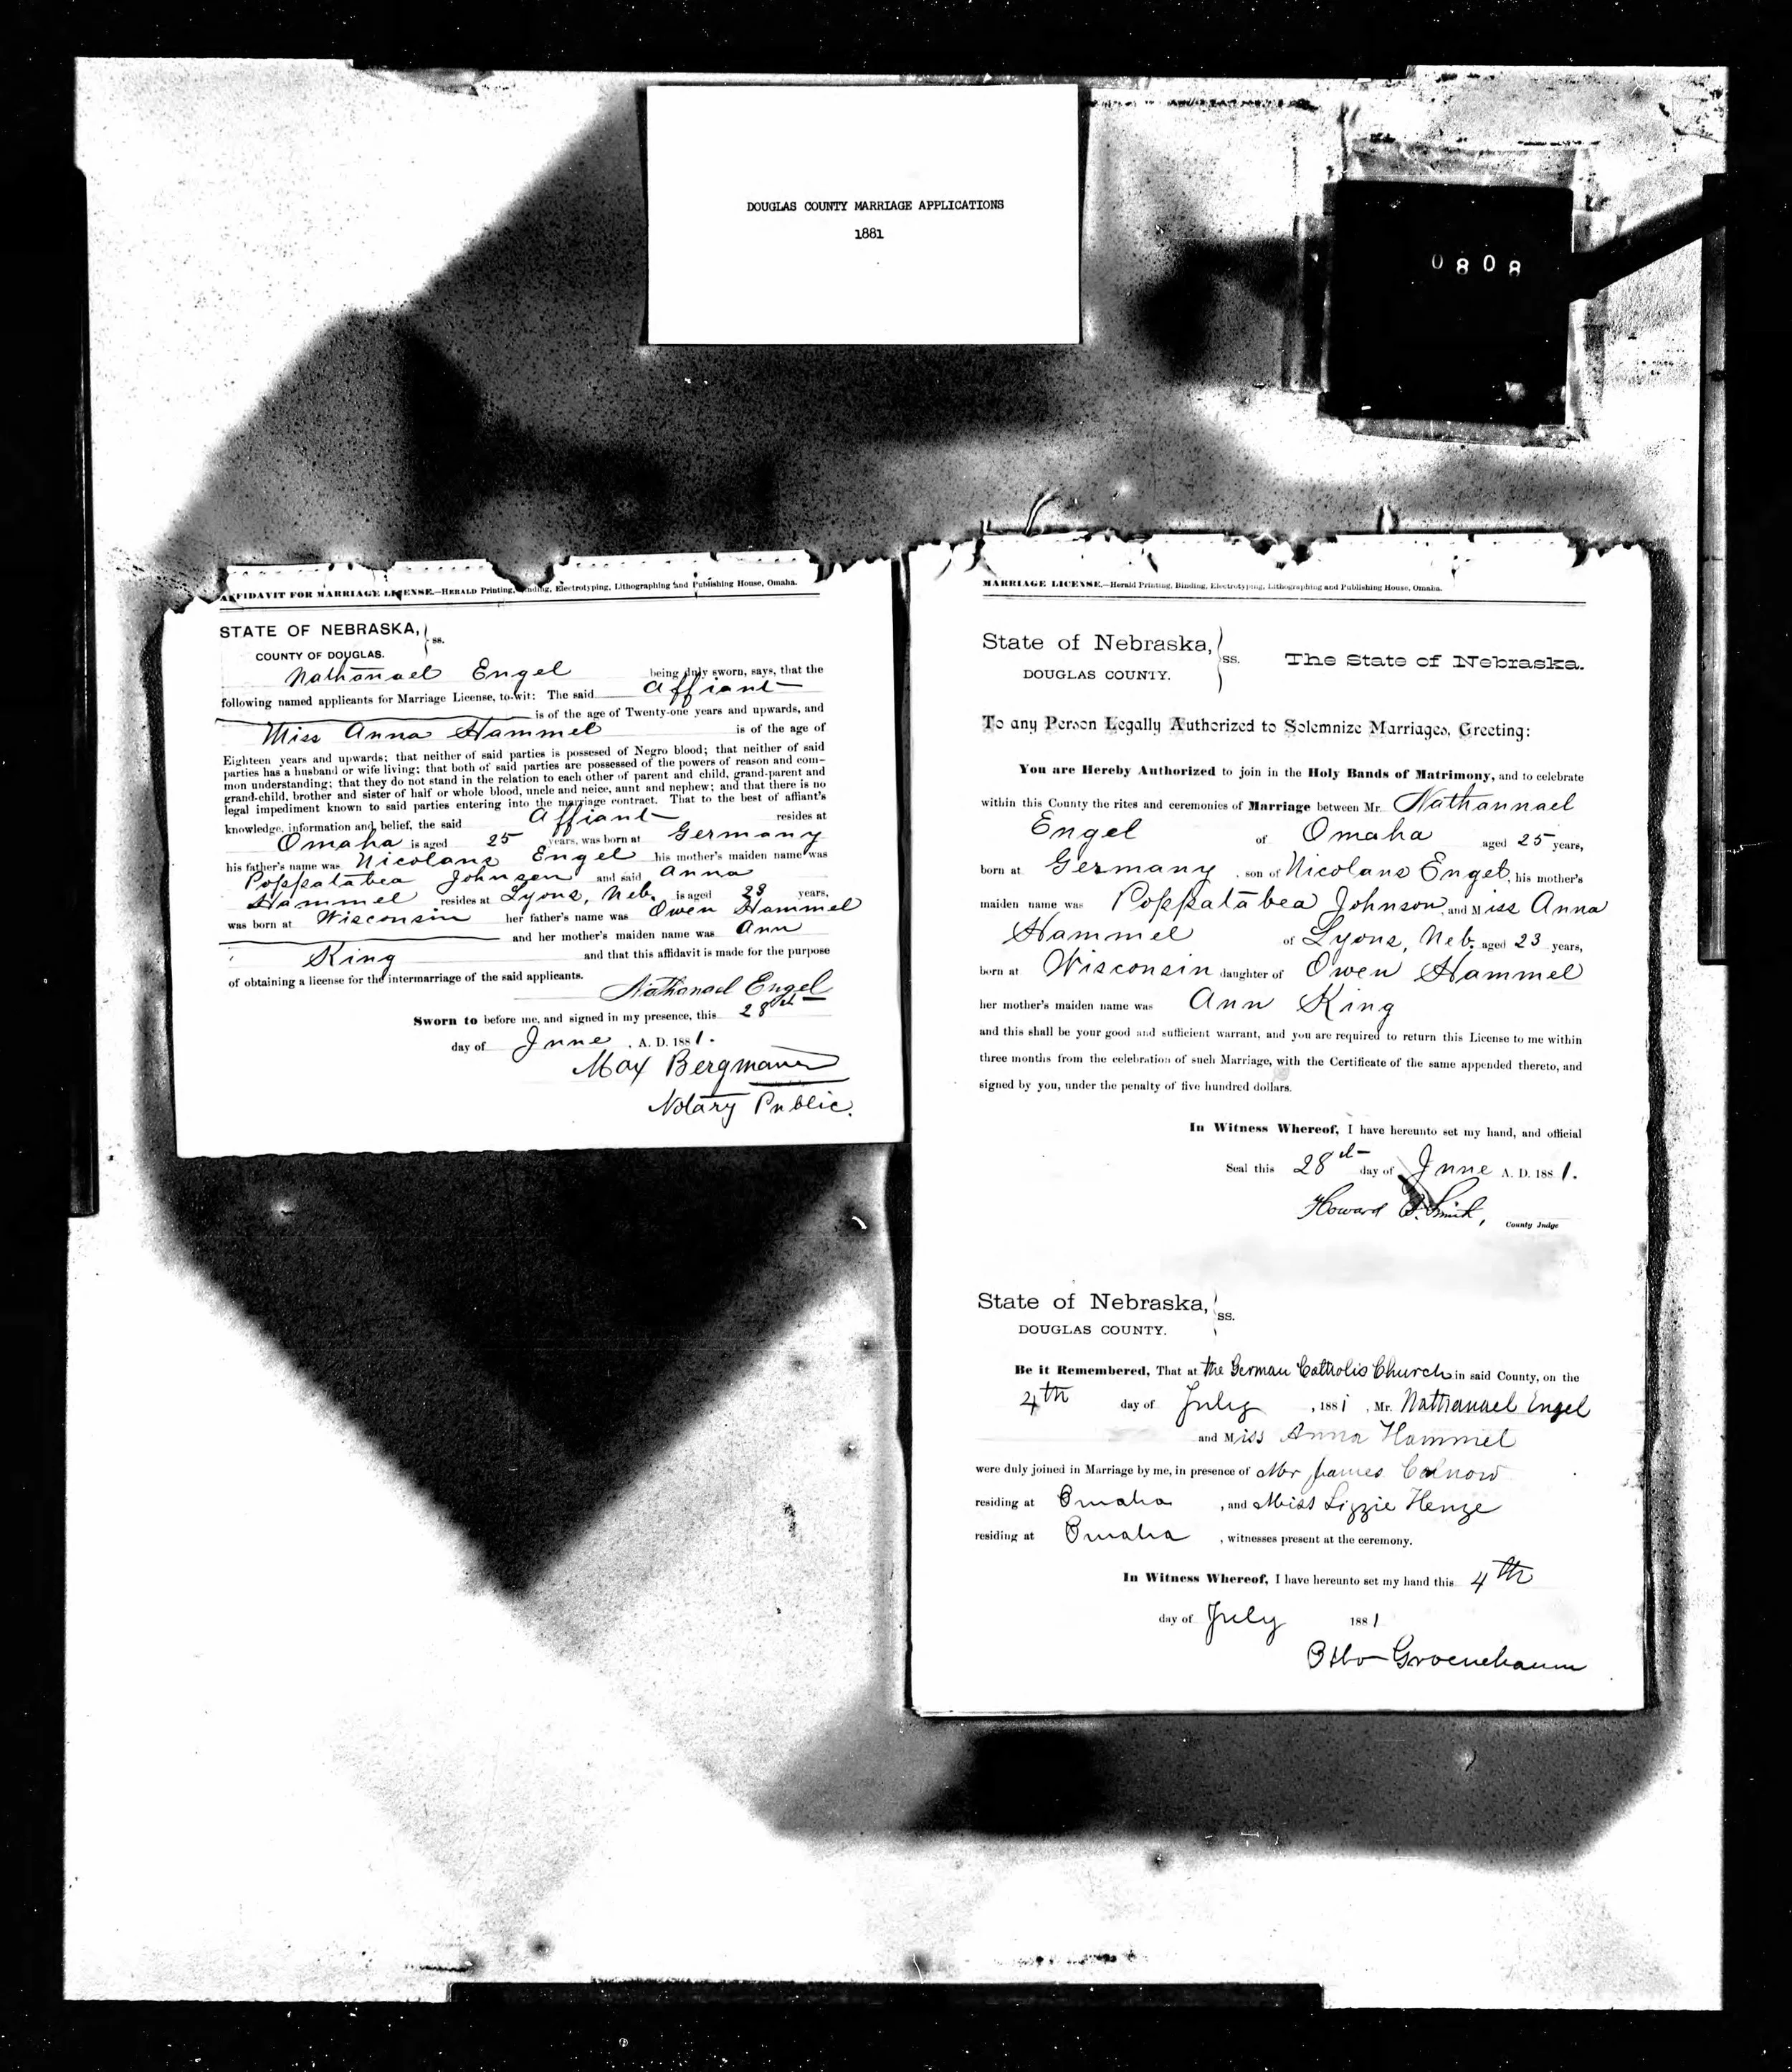 DOUGLAS COUNTY MARRIAGE APPLICATIONS
1881
0808
AFFIDAVIT FOR MARRIAGE LICENSE.—HERALD Printing, Binding, Electrotyping, Lithographing and Publishing House, Omaha.
STATE OF NEBRASKA, } ss.
COUNTY OF DOUGLAS.
Nathanael Engel being duly sworn, says, that the
following named applicants for Marriage License, to-wit: The said Affiant
is of the age of Twenty-one years and upwards, and
Miss Anna Hammel is of the age of
Eighteen years and upwards; that neither of said parties is possesed of Negro blood; that neither of said
parties has a husband or wife living; that both of said parties are possessed of the powers of reason and com-
mon understanding; that they do not stand in the relation to each other of parent and child, grand-parent and
grand-child, brother and sister of half or whole blood, uncle and neice, aunt and nephew; and that there is no
legal impediment known to said parties entering into the marriage contract. That to the best of affiant's
knowledge, information and belief, the said Affiant resides at
Omaha is aged 25 years, was born at Germany
his father's name was Nicolans Engel his mother's maiden name was
Poppatabea Johnson and said Anna
Hammel resides at Lyons, Neb. is aged 23 years,
was born at Wisconsin her father's name was Owen Hammel
and her mother's maiden name was Ann
King and that this affidavit is made for the purpose
of obtaining a license for the intermarriage of the said applicants.
Nathanael Engel
Sworn to before me, and signed in my presence, this 28th
day of June, A. D. 1881.
Max Bergmann
Notary Public.
MARRIAGE LICENSE.—Herald Printing, Binding, Electrotyping, Lithographing and Publishing House, Omaha.
State of Nebraska, } ss. The State of Nebraska.
DOUGLAS COUNTY.
To any Person Legally Authorized to Solemnize Marriages, Greeting:
You are Hereby Authorized to join in the Holy Bands of Matrimony, and to celebrate
within this County the rites and ceremonies of Marriage between Mr. Nathannael
Engel of Omaha aged 25 years,
born at Germany, son of Nicolans Engel, his mother's
maiden name was Poppatabea Johnson, and Miss Anna
Hammel of Lyons, Neb. aged 23 years,
born at Wisconsin daughter of Owen Hammel
her mother's maiden name was Ann King
and this shall be your good and sufficient warrant, and you are required to return this License to me within
three months from the celebration of such Marriage, with the Certificate of the same appended thereto, and
signed by you, under the penalty of five hundred dollars.
In Witness Whereof, I have hereunto set my hand, and official
Seal this 28th day of June A. D. 1881.
Howard B. Smith, County Judge
State of Nebraska, } ss.
DOUGLAS COUNTY.
Be it Remembered, That at the German Catholis Church in said County, on the
4th day of July, 1881, Mr. Nathanael Engel
and Miss Anna Hammel
were duly joined in Marriage by me, in presence of Mr James
residing at Omaha, and Miss Lizzie Henze
residing at Omaha, witnesses present at the ceremony.
In Witness Whereof, I have hereunto set my hand this 4th
day of July 1881
Otto Groenebaum